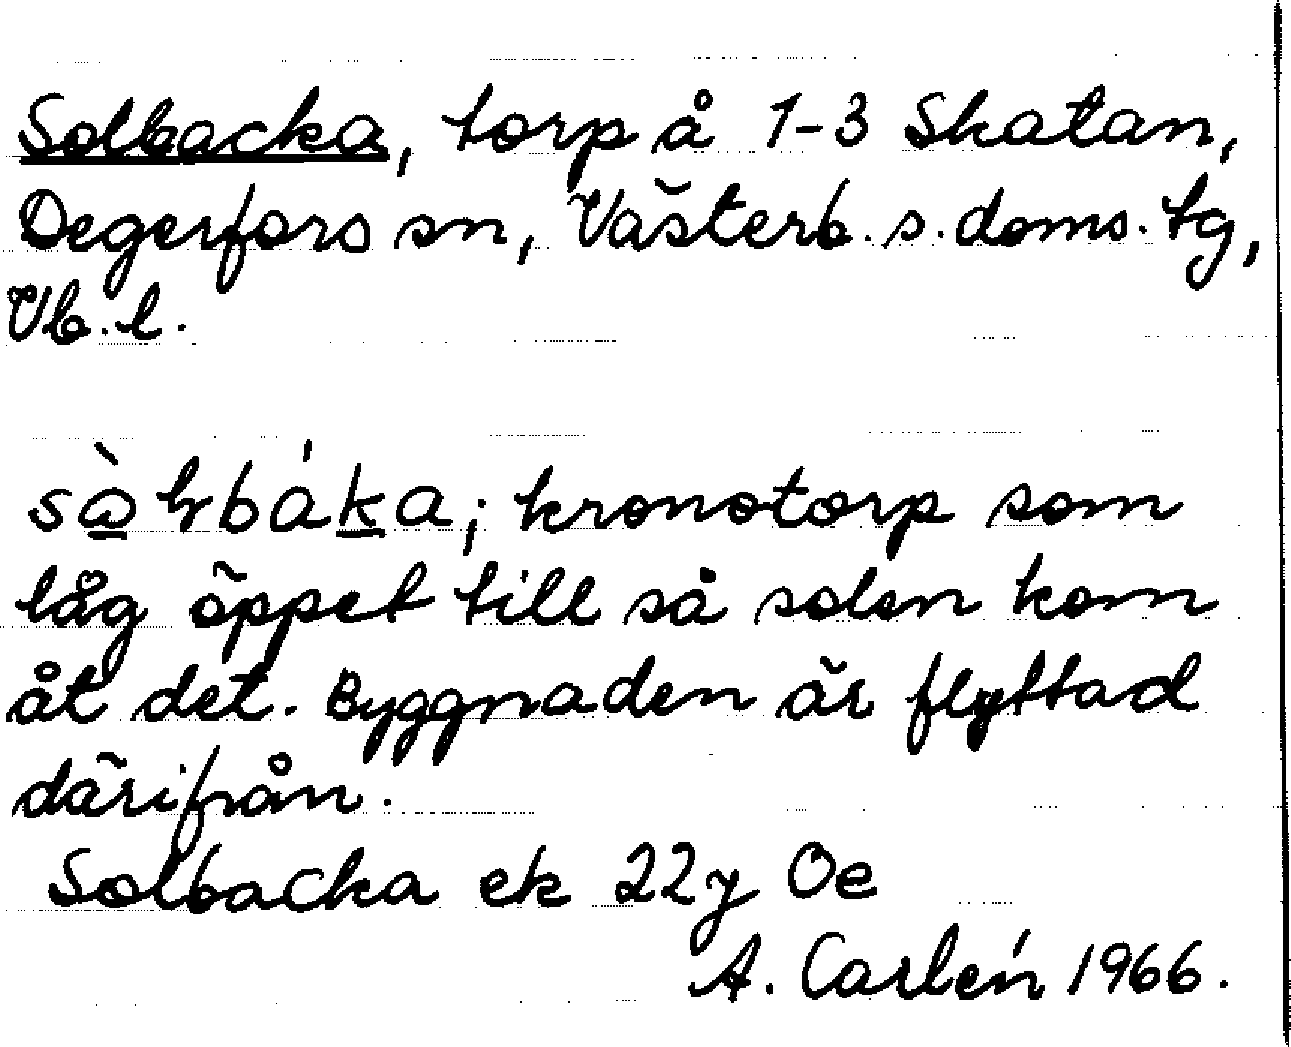 Solbacka, torp å 1-3 Skatan,
Degerfors sn, Västerb. s. doms. tg,
Vb. l.
kronotorp som
låg öppet till så solen kom
åt det. Byggnaden är flyttad
därifrån.
Solbacka ek 22y Oe
A. Carlén 1966.